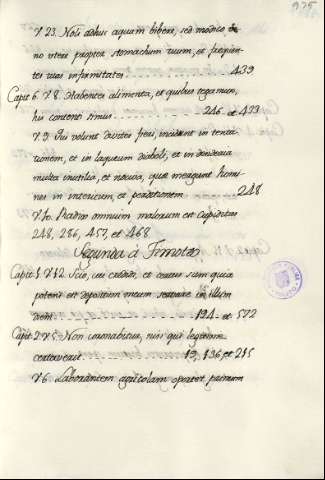 975
℣ 23. Noli adhuc aquam bibere, sed modico vi-
no utere propter stomachum tuum, et frequen-
tes tuas infirmitates 439
Capit 6. ℣ 8. Habentes alimenta, et quibus tegamur,
his contenti simus 246 et 473
℣ 9. Qui volunt divites fieri, incidunt in tenta-
tionem, et in laqueum diaboli, et in desideria
multa inutilia, et nociva, quæ mergunt homi-
nes in interitum, et perditionem 248
℣ 10. Radix omnium malorum est cupiditas
248, 286, 457, et 468
Segunda á Timoteo
Capit. 1. ℣ 12. Scio, cui credidi, et certus sum quia
potens est depositum meum servare in illum
diem 194 et 572
Capit 2. ℣ 5. Non coronabitur, nisi qui legitime
certaverit 19, 136 et 215
℣ 6. Laborantem agricolam oportet primum